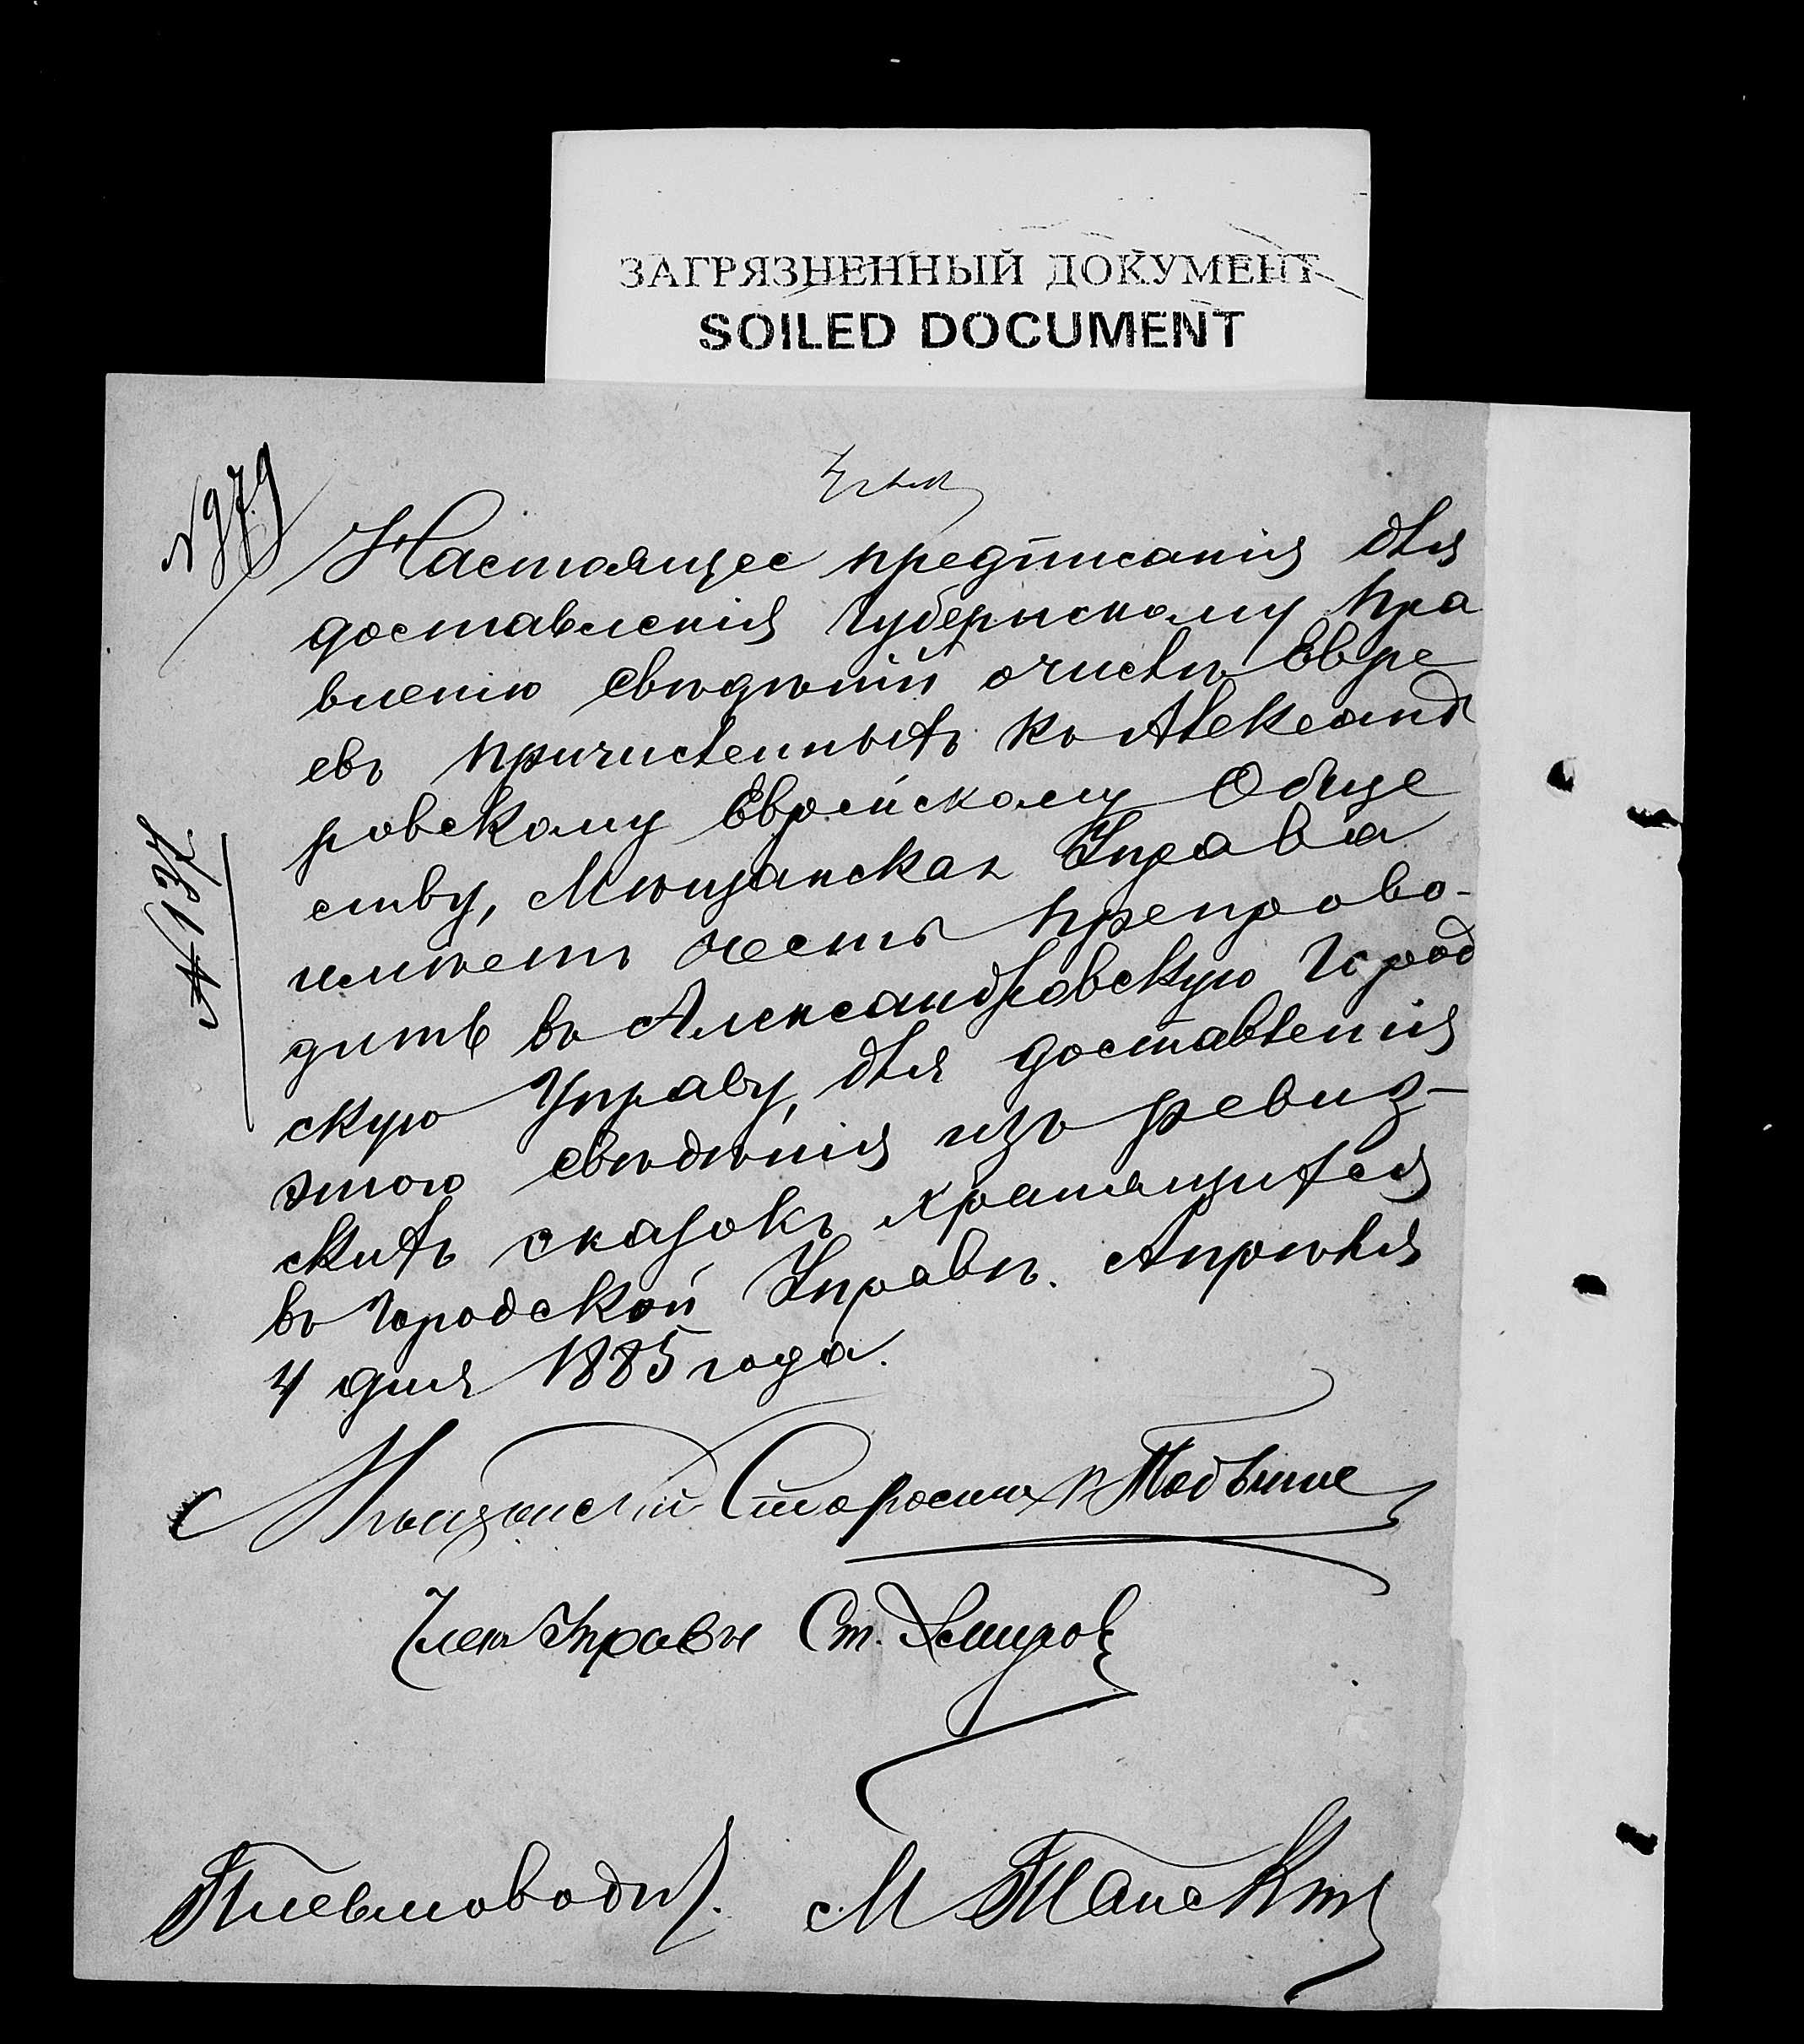 ЗАГРЯЗНЕННЫЙ ДОКУМЕНТ
SOILED DOCUMENT
№979
Настоящее предписанія для
доставленія Губернскому пра
вленію свѣдѣній очислѣ Евре
евъ причисленныхъ къ Александ
ровскому Еврейскому Обще
ству, Мѣщанская Управа
имѣетъ честь препрово-
дить въ Александровскую Город
скую Управу, для доставленія
этого свѣдѣнія изъ ревиз-
скихъ сказокъ хранящихся
въ Городской Управѣ. Апрѣля
4 дня 1885 года.
№137
Мѣщанскій Староста
Членъ Управы Ст.
Письмоводи. М